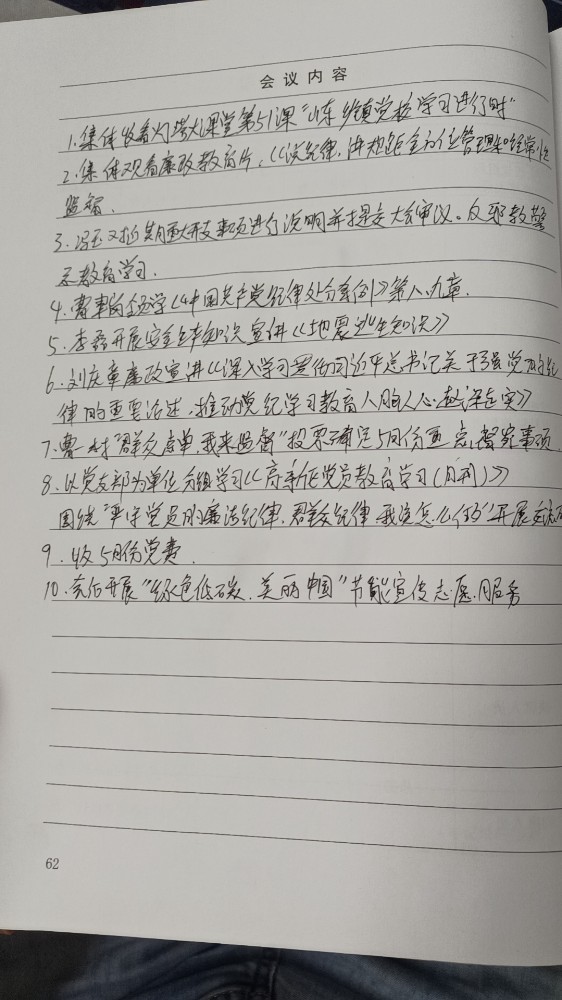 会议内容
1.集体收看灯塔大课堂第51课"山东乡镇党校学习进行时"
2.集体观看廉政教育片,《《谈纪律,讲规矩 管理和经常性
监督.
3. 事项进行说明并提交大会审议。反邪教警
示教育学习.
4. 学《《中国共产党纪律处分条例》》第八.九章.
5.李磊开展安全 知识宣讲《《地震逃生知识》》
6.刘庆章廉政宣讲《《深入学习贯彻习近平总书记关于加强党的纪
律的重要论述,推动党纪学习教育入脑入心.走深走实》》
7.曹 村"群众点单,我来监督"投票确定5月份重点督察事项
8.以党支部为单位分组学习《《高新区党员教育学习(月刊)》》
围绕"严守党员的廉洁纪律、群众纪律,我该怎么做"开展交流
9.收5月份党费.
10.会后开展"绿色低碳、美丽中国"节能宣传志愿服务
62